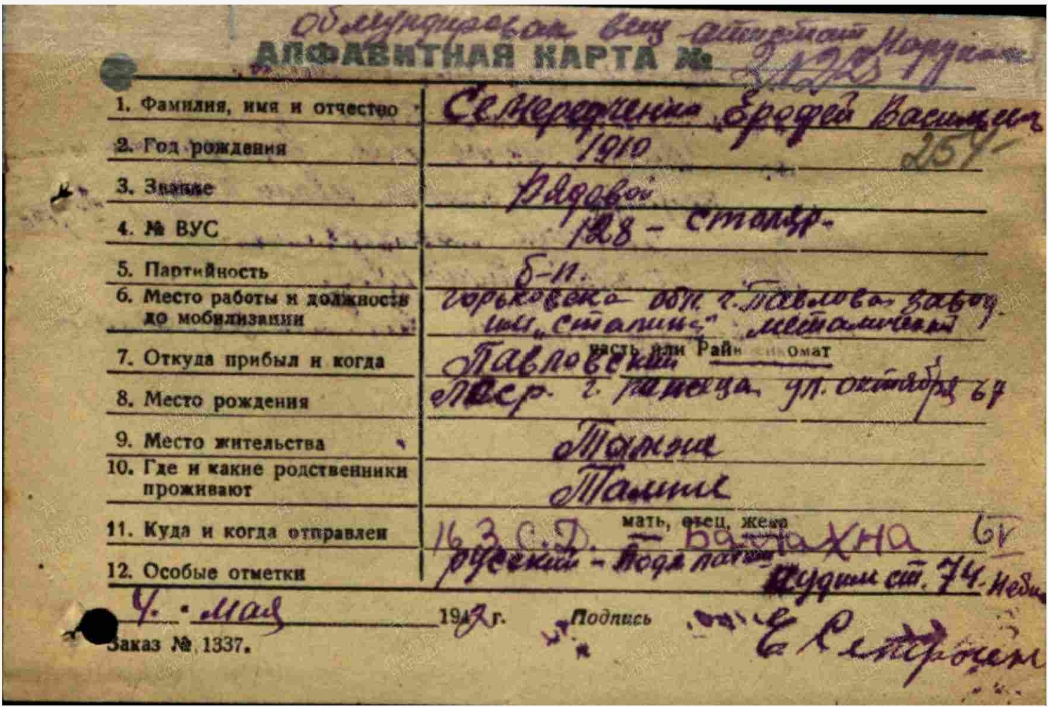 Обмундирован вещ аттестат
АЛФАВИТНАЯ КАРТА №
1. Фамилия, имя и отчество Семередченко Ерофей Васильич
2. Год рождения 1910 254
3. Звание Рядовой
4. № ВУС 128 - столяр.
5. Партийность б-п.
6. Место работы и должность до мобилизации горьковска обл. г. Павлова завод
им "Сталина" металический
часть или Райвоенкомат
7. Откуда прибыл и когда Павловский
8. Место рождения г. ул. октября 67
9. Место жительства Тамже
10. Где и какие родственники проживают Тамже
мать, отец, жена
11. Куда и когда отправлен 163 С.Д. Балахна 6/V
12. Особые отметки русский -
судим ст. 74.
4. мая 1942 г. Подпись
Заказ № 1337.